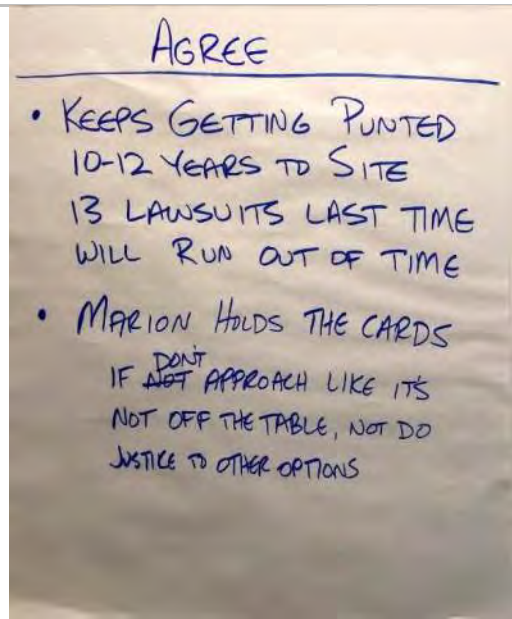 AGREE
• KEEPS GETTING PUNTED
10-12 YEARS TO SITE
13 LAWSUITS LAST TIME
WILL RUN OUT OF TIME
• MARION HOLDS THE CARDS
DON'T
IF NOT APPROACH LIKE IT'S
NOT OFF THE TABLE, NOT DO
JUSTICE TO OTHER OPTIONS